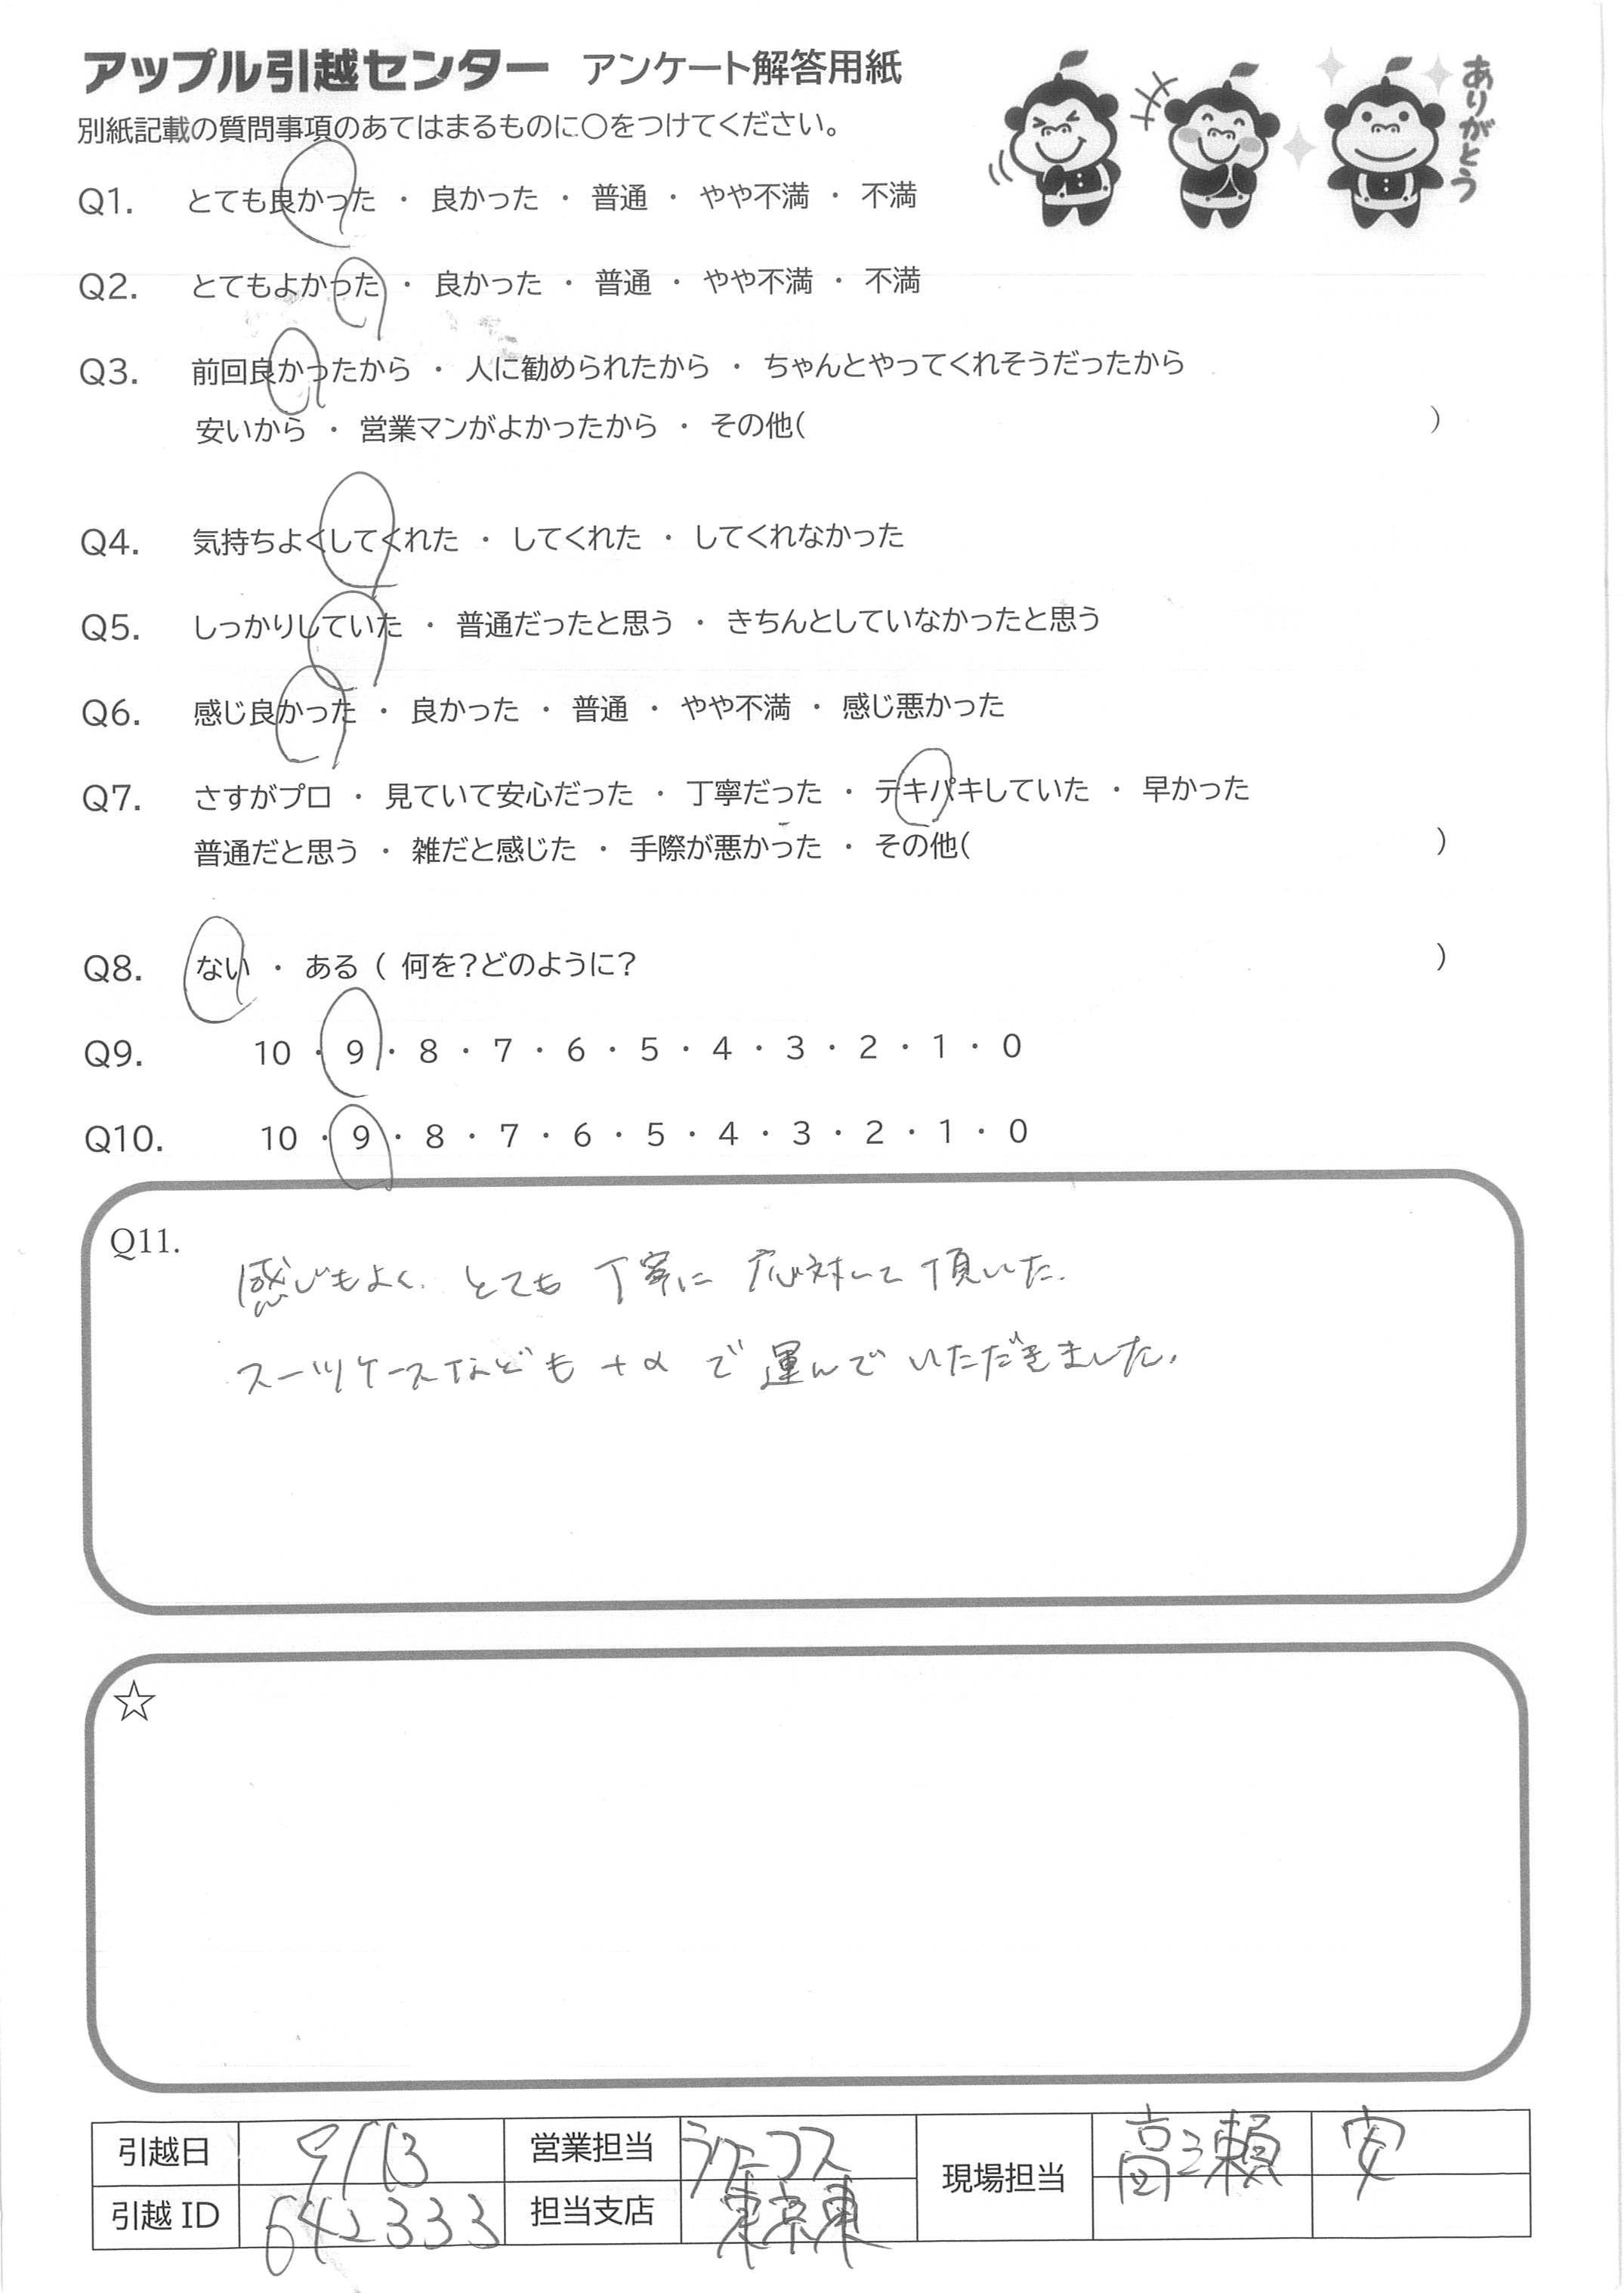 アップル引越センター アンケート解答用紙
別紙記載の質問事項のあてはまるものに〇をつけてください。
ありがとう
Q1. とても良かった ・ 良かった ・ 普通 ・ やや不満 ・ 不満
Q2. とてもよかった ・ 良かった ・ 普通 ・ やや不満 ・ 不満
Q3. 前回良かったから ・ 人に勧められたから ・ ちゃんとやってくれそうだったから
安いから ・ 営業マンがよかったから ・ その他( )
Q4. 気持ちよくしてくれた ・ してくれた ・ してくれなかった
Q5. しっかりしていた ・ 普通だったと思う ・ きちんとしていなかったと思う
Q6. 感じ良かった ・ 良かった ・ 普通 ・ やや不満 ・ 感じ悪かった
Q7. さすがプロ ・ 見ていて安心だった ・ 丁寧だった ・ テキパキしていた ・ 早かった
普通だと思う ・ 雑だと感じた ・ 手際が悪かった ・ その他( )
Q8. ない ・ ある ( 何を?どのように? )
Q9. 10 ・ 9 ・ 8 ・ 7 ・ 6 ・ 5 ・ 4 ・ 3 ・ 2 ・ 1 ・ 0
Q10. 10 ・ 9 ・ 8 ・ 7 ・ 6 ・ 5 ・ 4 ・ 3 ・ 2 ・ 1 ・ 0
Q11.
感じもよく、とても 丁寧に 応対して 頂いた.
スーツケースなども +α で 運んで いただきました。
☆
引越日 9/13 営業担当 現場担当 高瀬 安
引越 ID 642333 担当支店 東京東